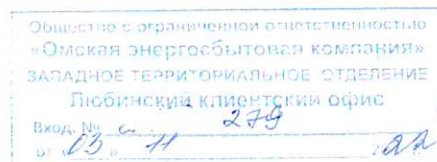 Общество с ограниченной ответственностью
«Омская энергосбытовая компания»
ЗАПАДНОЕ ТЕРРИТОРИАЛЬНОЕ ОТДЕЛЕНИЕ
Любинский клиентский офис
Вход. № 279
от « 03 » 11 2022